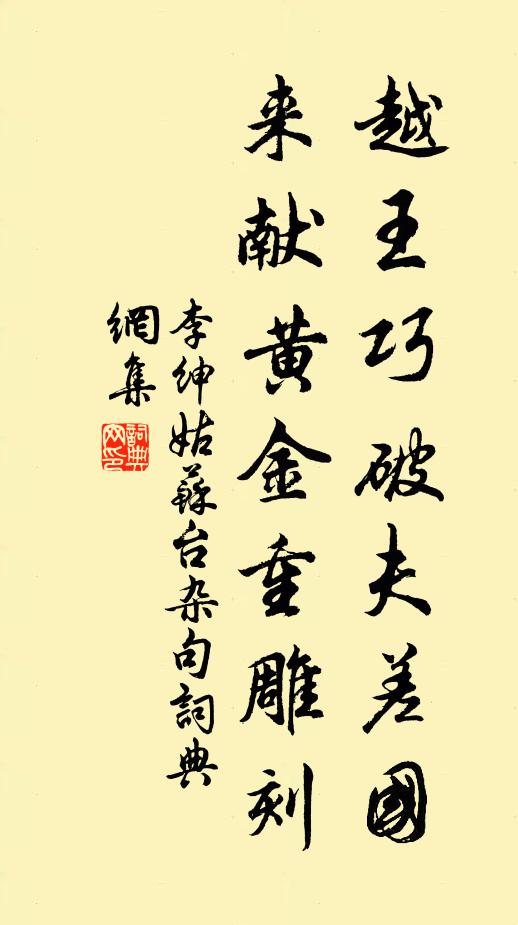 越王巧破夫差國
来献黄金重雕刻
李绅姑蘇台杂句詞典
網集
詞典
网印